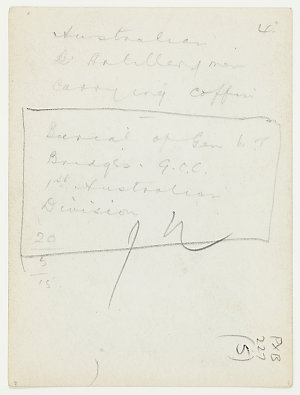 4.
Australian
& Artillery men
carrying coffin
Burial of Gen W T
Bridges. G.O.C.
1st Australian
Division
20
5
15
PXB
227
(5)